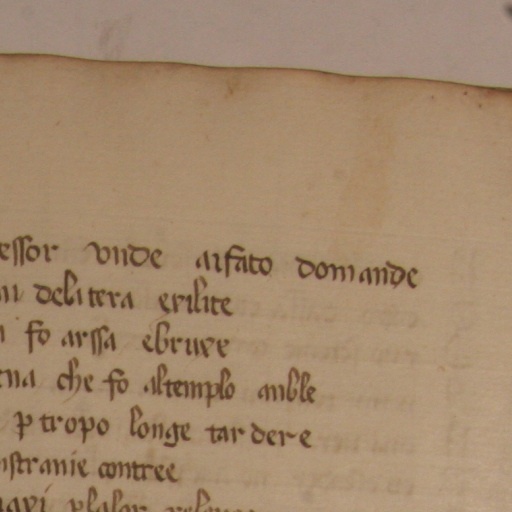 essor unde aifato domande
delitera erilite
fo arssa ebruxe
che fo altemplo anble
p tropo longe tardere
nstranie contree